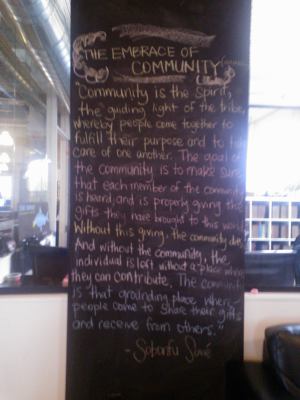 THE EMBRACE OF
COMMUNITY
"Community is the spirit,
the guiding light of the tribe,
whereby people come together to
fulfill their purpose and to
care of one another. The goal of
the community is to make sure
that each member of the community
is heard and is properly giving the
gifts they have brought to this world.
Without this giving, the community dies.
And without the community, the
individual is left without a place where
they can contribute. The community
is that grounding place where
people come to share their gifts
and receive from others."
- Sobonfu Somé